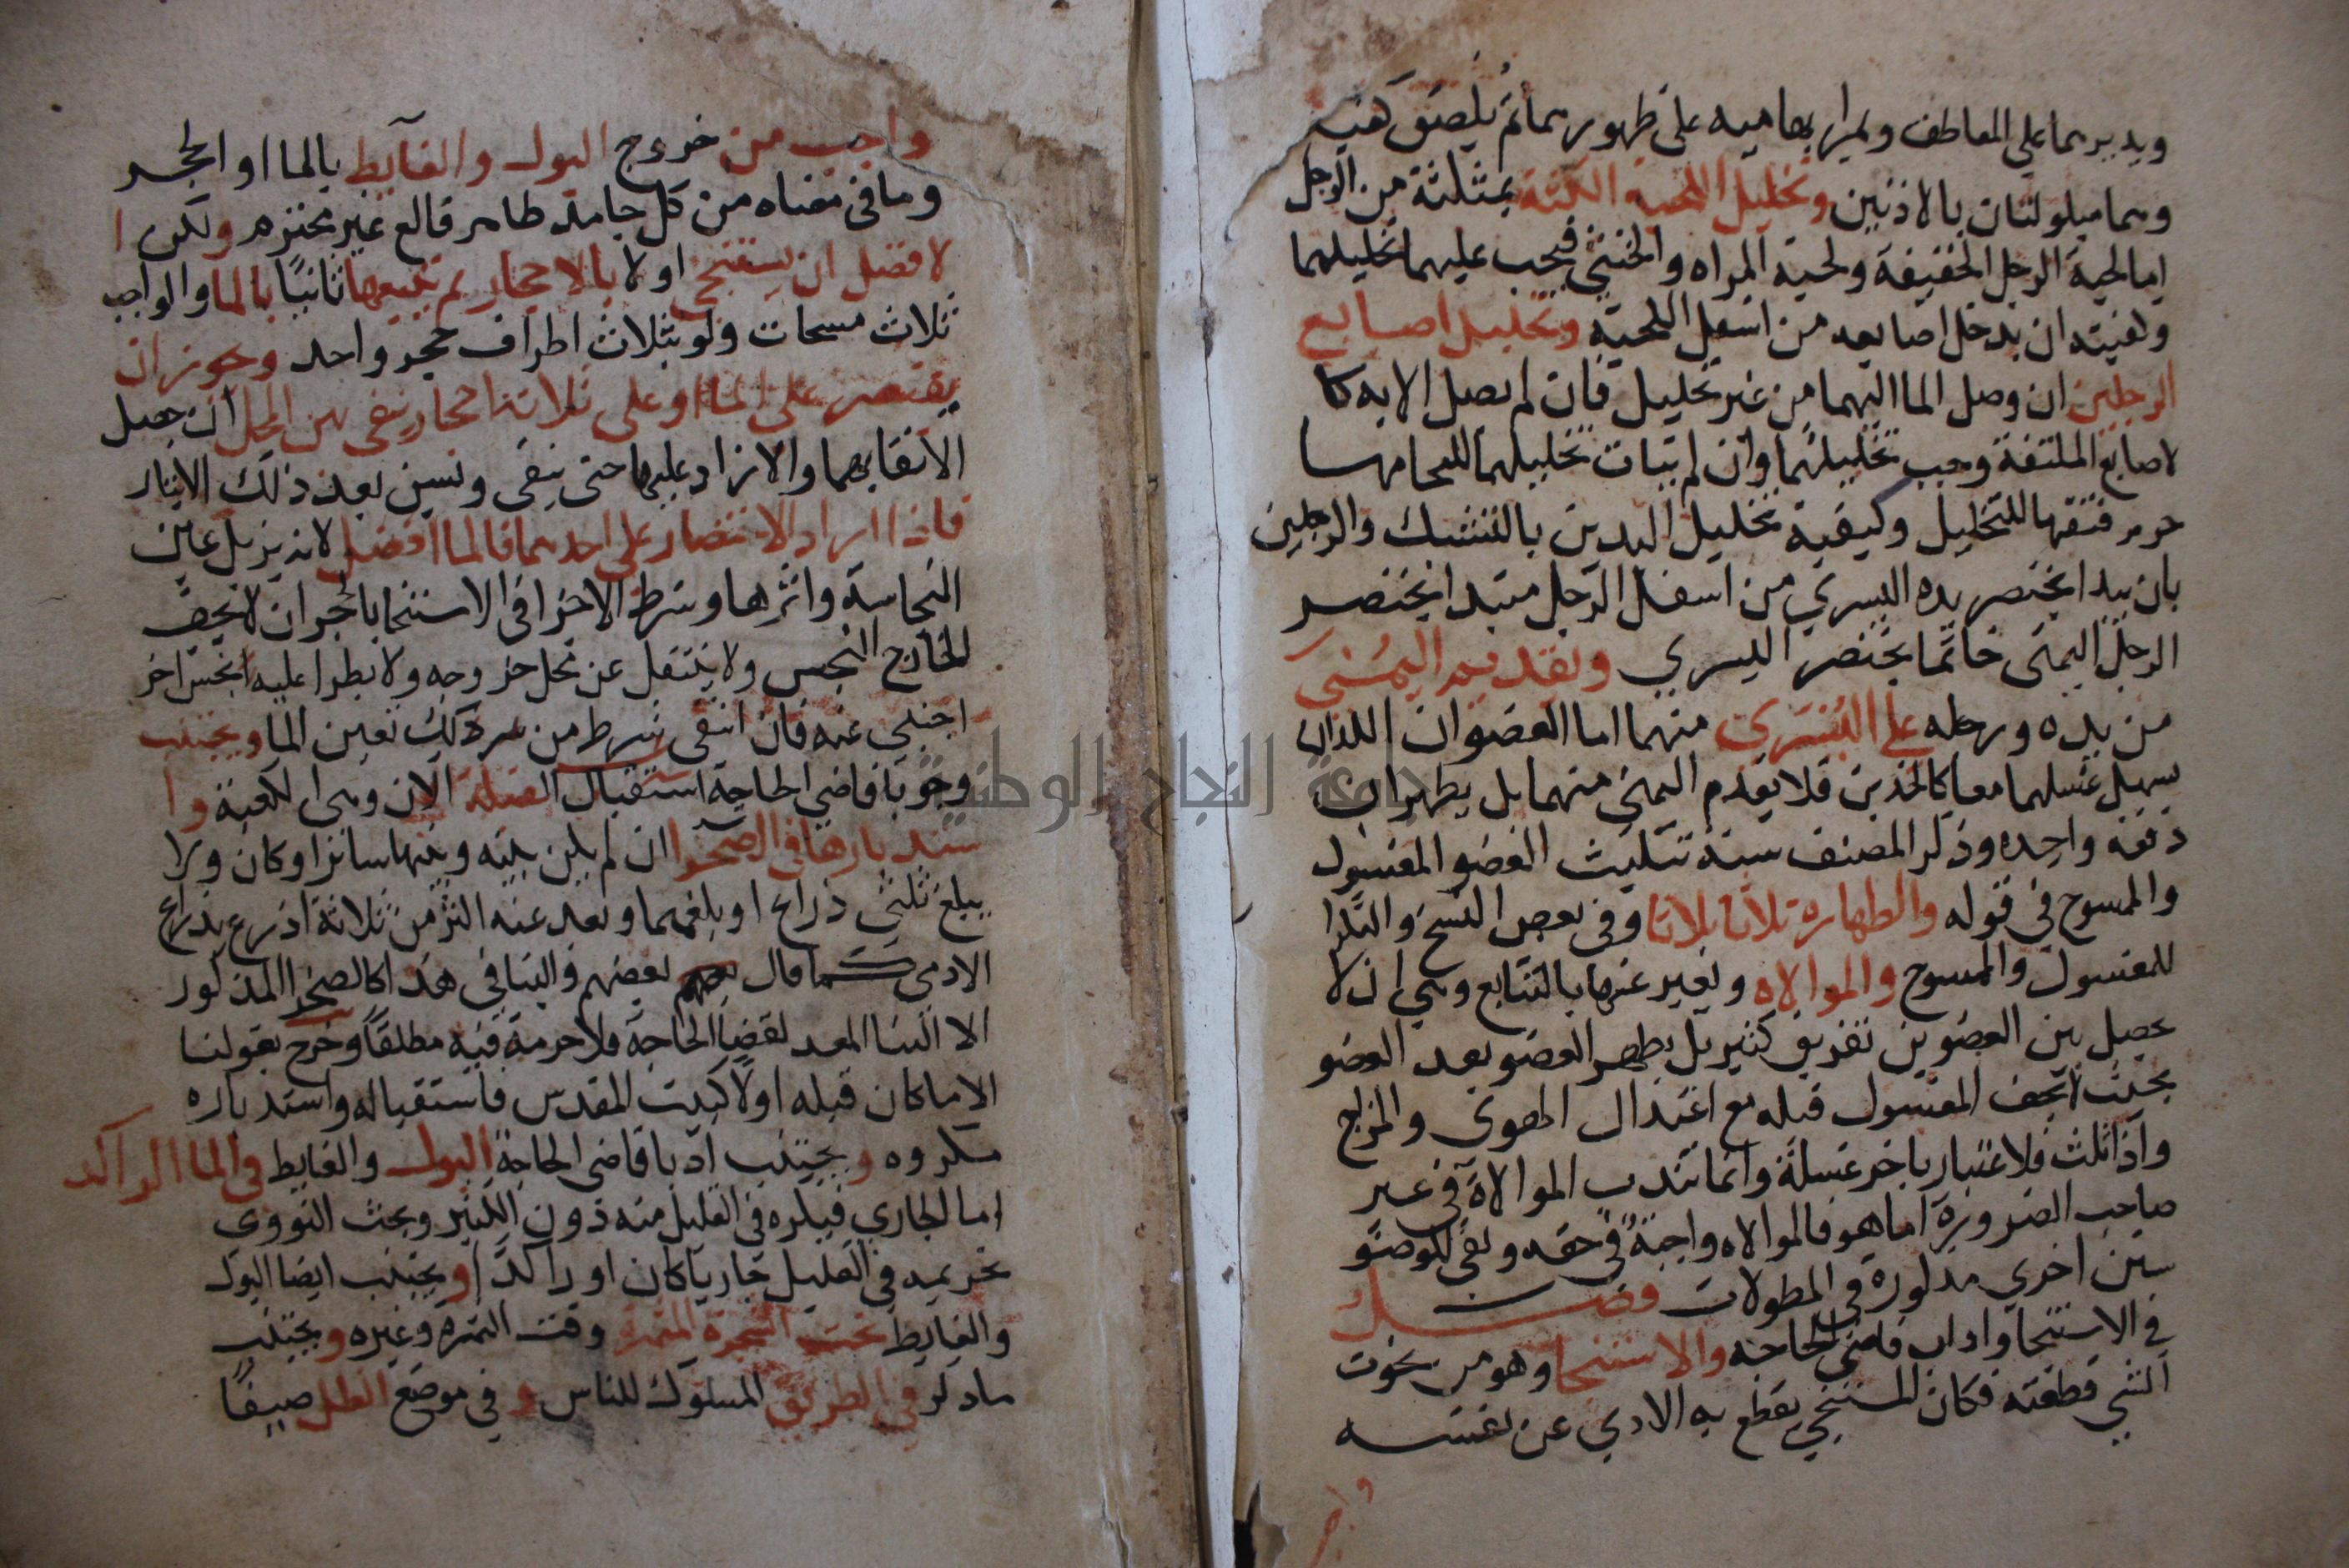 ويديرهما على المعاطف ويمر ابهاميه على ظهورهما ثم يلصق كفيه
وهما مبلولتان بالاذنين وتخليل اللحية الكثة بمثلثة من الرجل
اما لحية الرجل الخفيفة ولحية المراه والخنثي فيجب عليهما تخليلهما
وكيفيته ان يدخل اصابعه من اسفل اللحية وتخليل اصابع
الرجلين ان وصل الما اليهما من غير تخليل فان لم يصل الا به كا
لاصابع الملتفة وجب تخليلهما وان لم يتات تخليلهما لالتحامهما
حرم فتقها للتخليل وكيفية تخليل اليدين بالتشبيك والرجلين
بان يبدا بخنصر يده اليسري من اسفل الرجل مبتدا بخنصر
الرجل اليمنى خاتما بخنصر اليسري وتقديم اليمنى
من يديه ورجله على اليسرى منهما اما العضوان اللذان
يسهل غسلهما معا كالخدين فلا يقدم اليمني منهما بل يطهران
دفعة واحده وذكر المصنف سنة تثليث العضو المغسول
والممسوح في قوله والطهارة ثلاثا ثلاثا وفي بعض النسخ والتكرار
للمغسول والممسوح والموالاه ويعبر عنها بالتتابع وهي ان لا
يحصل بين العضوين تفريق كثير بل يطهر العضو بعد العضو
بحيث لا يجف المغسول قبله مع اعتدال الهوى والمزاج
واذا ثلث فلاعتبار باخر غسلة وانما تندب الموالاة في غير
صاحب الضرورة اما هو فالموالاه واجبة في حقه وبقي للوضو
سنن اخري مذكورة في المطولات فصل
في الاستنجا واداب قاضي الحاجه والاستنجا وهو من نجوت
الشي قطعته فكان المستنجي يقطع به الاذي عن نفسه
واجب
واجب من خروج البول والغايط بالما او الحجر
وما في معناه من كل جامد طاهر قالع غير محترم ولكن ا
لافضل ان يستنجي اولا بالاحجار ثم يتبعها ثانيا بالما والواجب
ثلاث مسحات ولو بثلاث اطراف حجر واحد ويجوز ان
يقتصر على الما او على ثلاثة احجار ينقي بهن المحل ان حصل
الانقا بهما والا زاد عليها حتى ينقى ويسن بعد ذلك الايتار
فاذا اراد الاقتصار على احدهما فالما افضل لانه يزيل عين
النجاسة واثرها وشرط الاجزا في الاستنجا بالحجر ان لا يجف
الخارج النجس ولا ينتقل عن محل خروجه ولا يطرا عليه نجس اخر
اجنبي عنه فان انتفى شرط من ذلك تعين الما ويجتنب
وجوبا قاضي الحاجة استقبال القبلة الان وهي الكعبة وا
ستدبارها في الصحرا ان لم يكن بينه وبينها ساتر او كان ولا
يبلغ ثلثي ذراع او بلغهما وبعد عنه اكثر من ثلاثة اذرع بذراع
الادمي كما قال بعضهم والبنا في هذا كالصحرا المذكور
الا البنا المعد لقضا الحاجة فلا حرمة فيه مطلقا وخرج بقولنا
الا ما كان قبله اولا كبيت المقدس فاستقباله واستدباره
مكروه ويجتنب ادبا قاضي الحاجة البول والغايط في الما الراكد
اما الجاري فيكره في القليل منه دون الكثير وبحث النووى
تحريمه في القليل جاريا كان او راكدا ويجتنب ايضا البول
والغايط تحت الشجرة المثمرة وقت الثمره وغيره ويجتنب
ما ذكر في الطريق المسلوك للناس و في موضع الظل صيفا
جامعة النجاح الوطنية